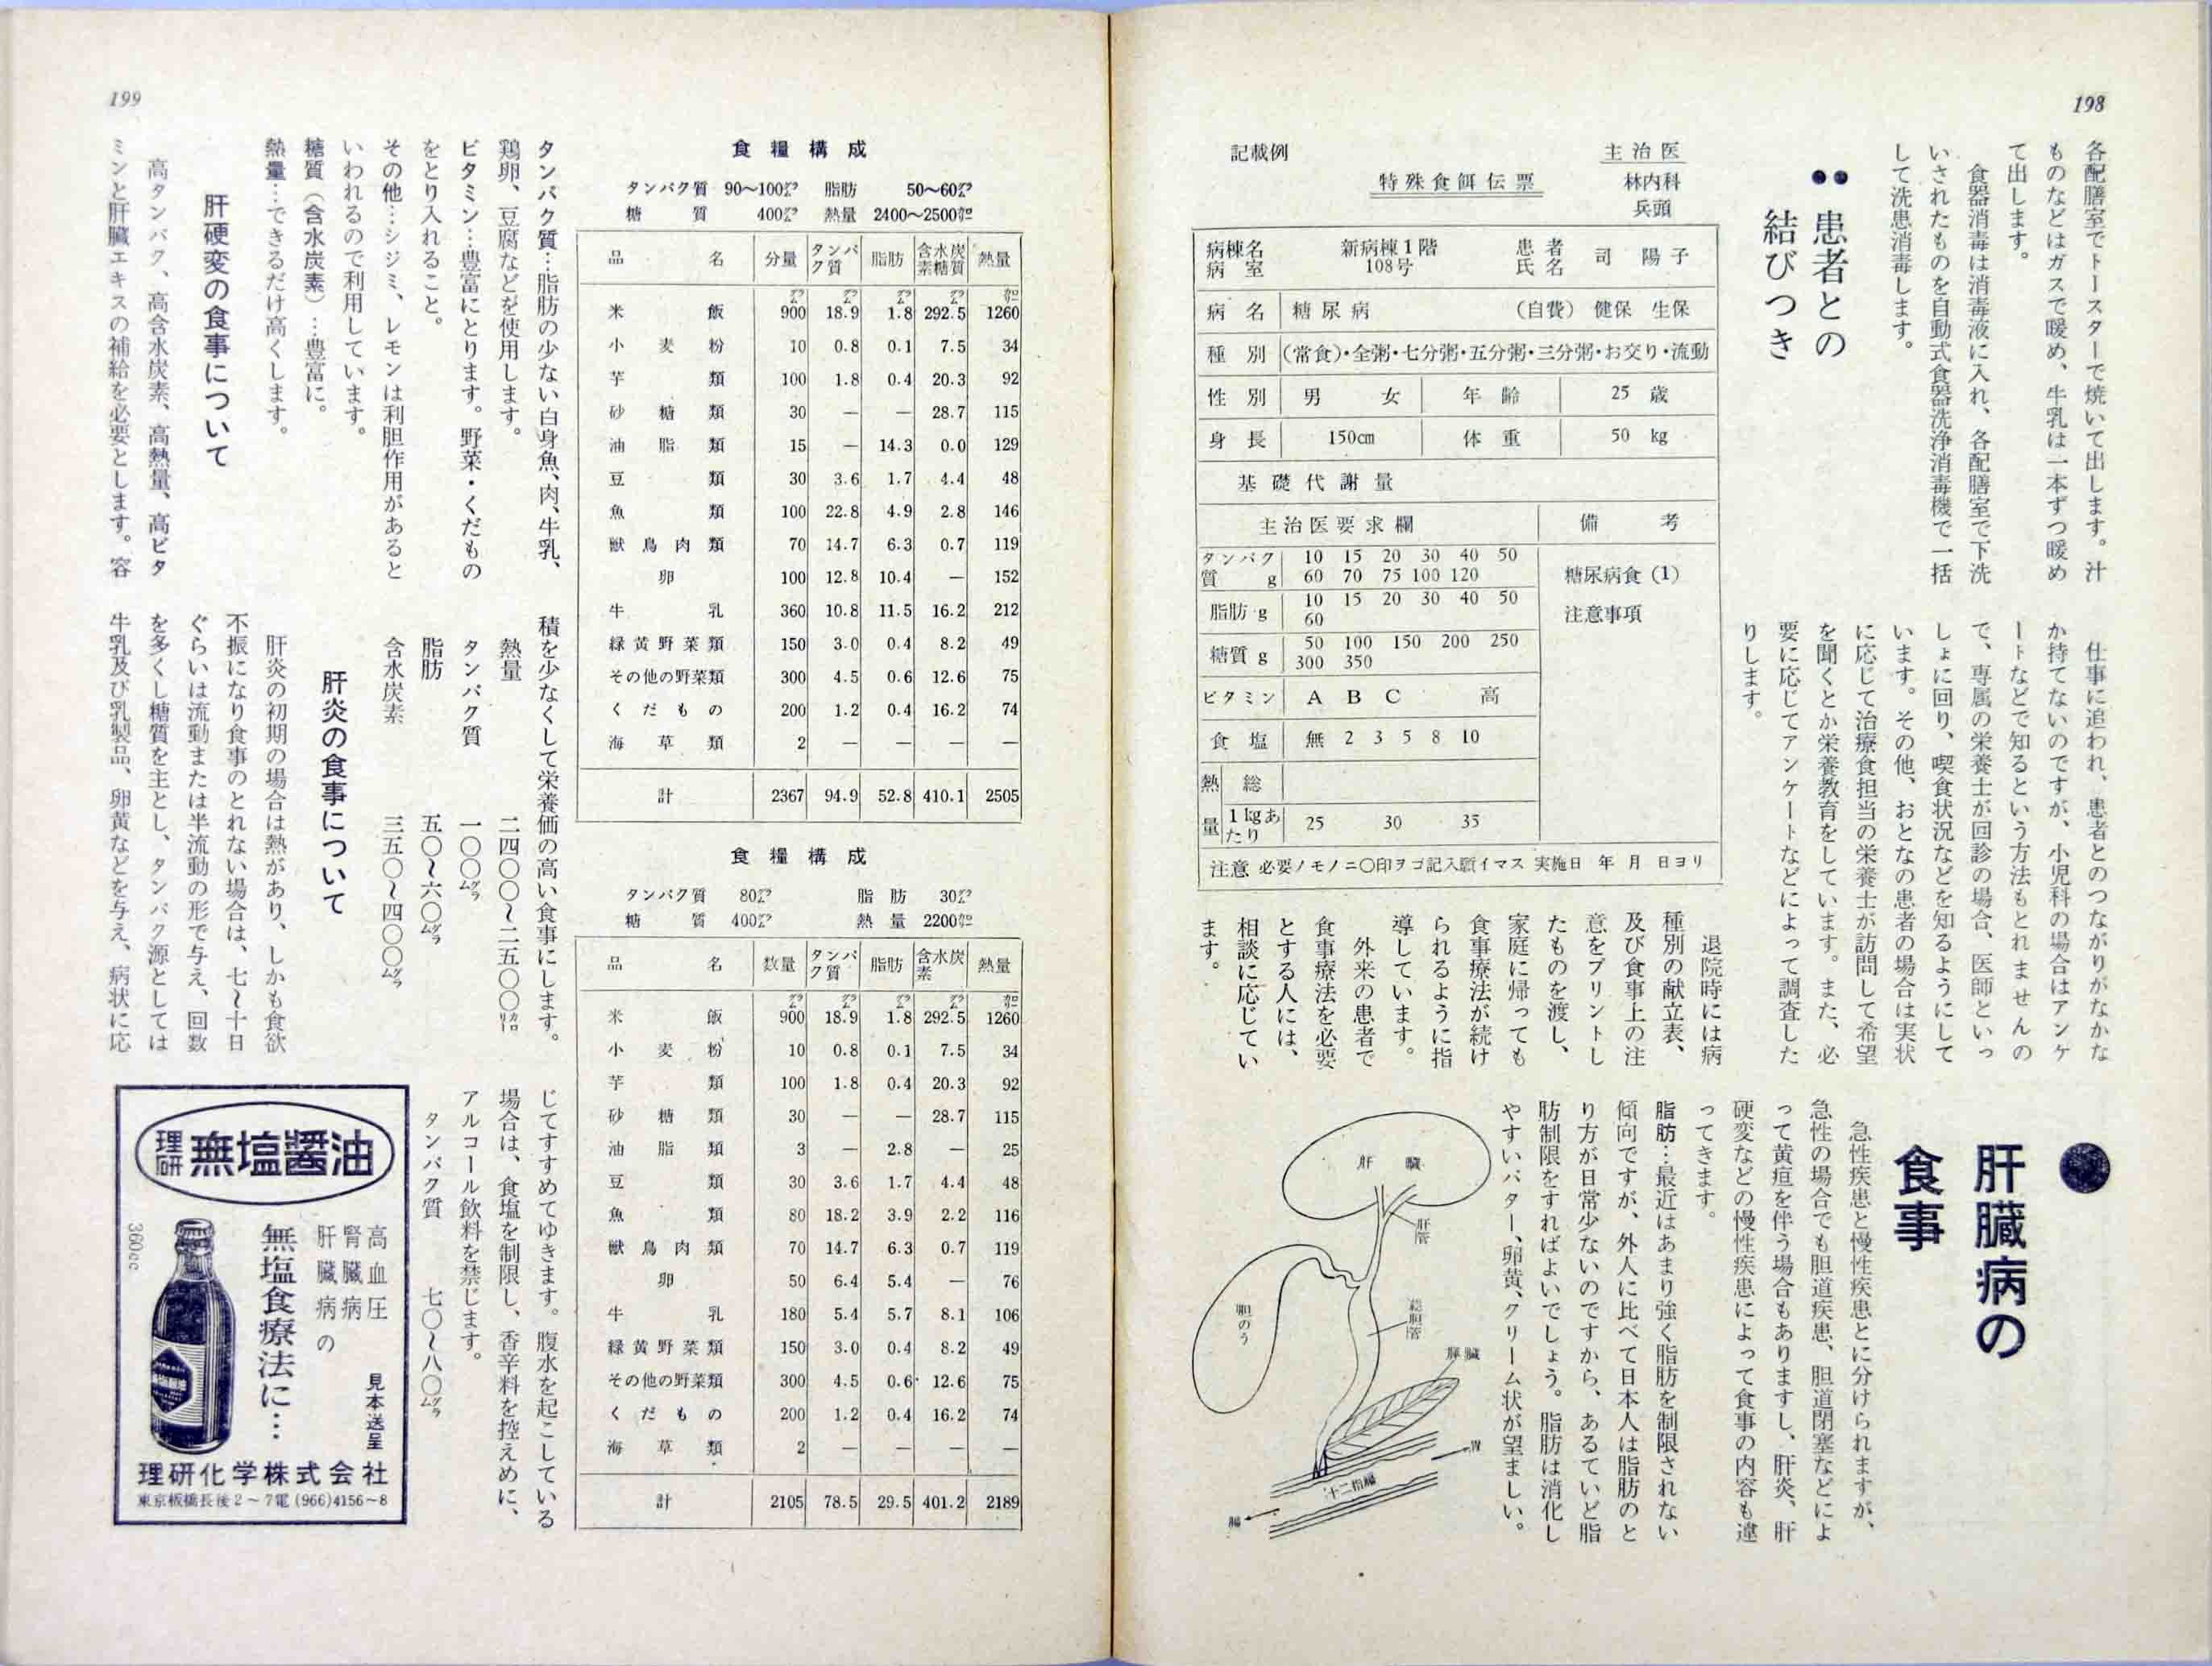 198
各配膳室でトースターで焼いて出します。汁
ものなどはガスで暖め、牛乳は一本ずつ暖め
て出します。
食器消毒は消毒液に入れ、各配膳室で下洗
いされたものを自動式食器洗浄消毒機で一括
して洗患消毒します。
●● 患者との
結びつき
仕事に追われ、患者とのつながりがなかな
か持てないのですが、小児科の場合はアンケ
ートなどで知るという方法もとれませんの
で、専属の栄養士が回診の場合、医師といっ
しょに回り、喫食状況などを知るようにして
います。その他、おとなの患者の場合は実状
に応じて治療食担当の栄養士が訪問して希望
を聞くとか栄養教育をしています。また、必
要に応じてアンケートなどによって調査した
りします。
記載例
主治医
特殊食餌伝票
林内科
兵頭
病棟名 新病棟1階 患者 司 陽子
病室 108号 氏名
病名 糖尿病 (自費) 健保 生保
種別 (常食)・全粥・七分粥・五分粥・三分粥・お交り・流動
性別 男 女 年齢 25 歳
身長 150cm 体重 50 kg
基礎代謝量
主治医要求欄 備考
タンパク 10 15 20 30 40 50
質 g 60 70 75 100 120
糖尿病食(1)
脂肪 g 10 15 20 30 40 50
60
注意事項
糖質 g 50 100 150 200 250
300 350
ビタミン A B C 高
食塩 無 2 3 5 8 10
熱 総
量 1kgあたり 25 30 35
注意 必要ノモノニ○印ヲゴ記入願イマス 実施日 年 月 日ヨリ
退院時には病
種別の献立表、
及び食事上の注
意をプリントし
たものを渡し、
家庭に帰っても
食事療法が続け
られるように指
導しています。
外来の患者で
食事療法を必要
とする人には、
相談に応じてい
ます。
● 肝臓病の
食事
急性疾患と慢性疾患とに分けられますが、
急性の場合でも胆道疾患、胆道閉塞などによ
って黄疸を伴う場合もありますし、肝炎、肝
硬変などの慢性疾患によって食事の内容も違
ってきます。
脂肪…最近はあまり強く脂肪を制限されない
傾向ですが、外人に比べて日本人は脂肪のと
り方が日常少ないのですから、あるていど脂
肪制限をすればよいでしょう。脂肪は消化し
やすいバター、卵黄、クリーム状が望ましい。
肝臓
肝管
胆のう
総胆管
膵臓
胃
十二指腸
腸
199
食糧構成
タンパク質 90〜100グラム 脂肪 50〜60グラム
糖質 400グラム 熱量 2400〜2500カロリー
品名 分量 タンパク質 脂肪 含水炭素糖質 熱量
グラム グラム グラム グラム カロリー
米飯 900 18.9 1.8 292.5 1260
小麦粉 10 0.8 0.1 7.5 34
芋類 100 1.8 0.4 20.3 92
砂糖類 30 — — 28.7 115
油脂類 15 — 14.3 0.0 129
豆類 30 3.6 1.7 4.4 48
魚類 100 22.8 4.9 2.8 146
獣鳥肉類 70 14.7 6.3 0.7 119
卵 100 12.8 10.4 — 152
牛乳 360 10.8 11.5 16.2 212
緑黄野菜類 150 3.0 0.4 8.2 49
その他の野菜類 300 4.5 0.6 12.6 75
くだもの 200 1.2 0.4 16.2 74
海草類 2 — — — —
計 2367 94.9 52.8 410.1 2505
食糧構成
タンパク質 80グラム 脂肪 30グラム
糖質 400グラム 熱量 2200カロリー
品名 数量 タンパク質 脂肪 含水炭素 熱量
グラム グラム グラム グラム カロリー
米飯 900 18.9 1.8 292.5 1260
小麦粉 10 0.8 0.1 7.5 34
芋類 100 1.8 0.4 20.3 92
砂糖類 30 — — 28.7 115
油脂類 3 — 2.8 — 25
豆類 30 3.6 1.7 4.4 48
魚類 80 18.2 3.9 2.2 116
獣鳥肉類 70 14.7 6.3 0.7 119
卵 50 6.4 5.4 — 76
牛乳 180 5.4 5.7 8.1 106
緑黄野菜類 150 3.0 0.4 8.2 49
その他の野菜類 300 4.5 0.6 12.6 75
くだもの 200 1.2 0.4 16.2 74
海草類 2 — — — —
計 2105 78.5 29.5 401.2 2189
タンパク質…脂肪の少ない白身魚、肉、牛乳、
鶏卵、豆腐などを使用します。
ビタミン…豊富にとります。野菜・くだもの
をとり入れること。
その他…シジミ、レモンは利胆作用があると
いわれるので利用しています。
糖質（含水炭素）…豊富に。
熱量…できるだけ高くします。
肝硬変の食事について
高タンパク、高含水炭素、高熱量、高ビタ
ミンと肝臓エキスの補給を必要とします。容
積を少なくして栄養価の高い食事にします。
熱量 二四〇〇〜二五〇〇カロリー
タンパク質 一〇〇グラム
脂肪 五〇〜六〇グラム
含水炭素 三五〇〜四〇〇グラム
肝炎の食事について
肝炎の初期の場合は熱があり、しかも食欲
不振になり食事のとれない場合は、七〜十日
ぐらいは流動または半流動の形で与え、回数
を多くし糖質を主とし、タンパク源としては
牛乳及び乳製品、卵黄などを与え、病状に応
じてすすめてゆきます。腹水を起こしている
場合は、食塩を制限し、香辛料を控えめに、
アルコール飲料を禁じます。
タンパク質 七〇〜八〇グラム
理研 無塩醤油
高血圧
腎臓病
肝臓病の
無塩食療法に…
見本送呈
360cc
理研化学株式会社
東京板橋長後2〜7電(966)4156〜8